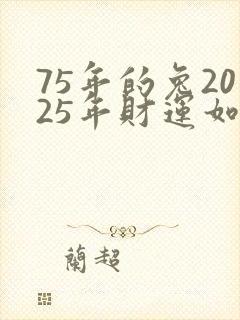 75年的兔20
25年財運如
蘭超